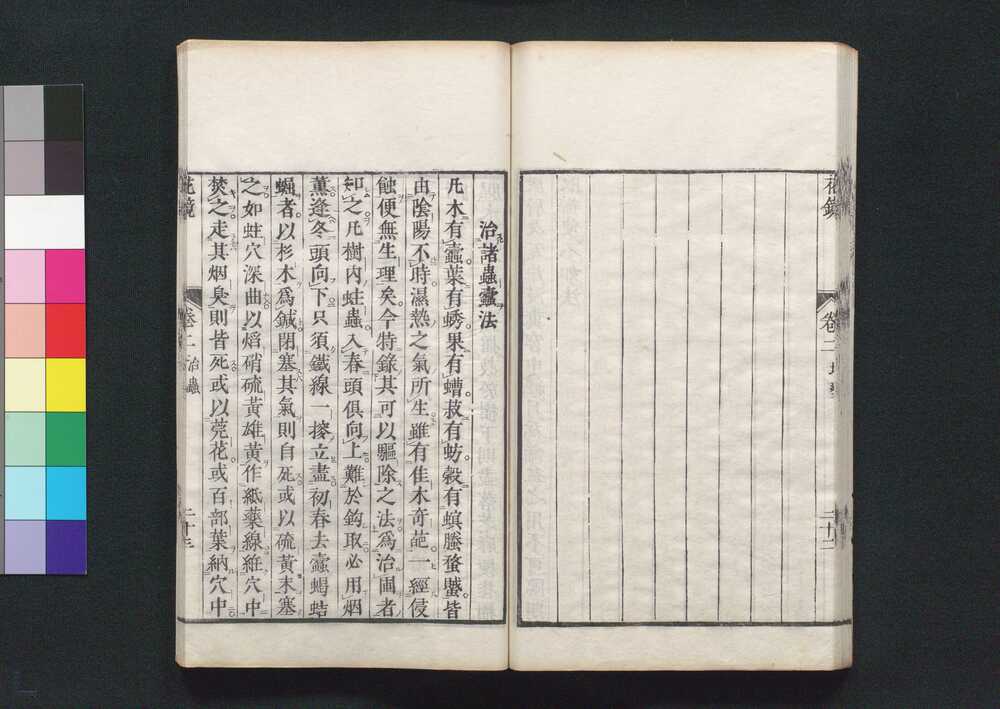 花鏡
卷二
二十二
治諸蟲蠹法
凡木有蠹葉有蟊果有螬菽有蚄穀有螟螣蟊蠈皆
由陰陽不時濕熱之氣所生雖有佳木奇葩一經侵
蝕便無生理矣今特錄其可以驅除之法爲治圃者
知之凡樹內蛀蟲入春頭俱向上難於鈎取必用烟
薰逢冬頭向下只須鐵線一搜立盡初春去蠹蝎蛣
蝠者以杉木爲鍼閉塞其氣則自死或以硫黃末塞
之如蛀穴深曲以焰硝硫黃雄黃作紙藥線維穴中
焚之走其烟臭則皆死或以芫花或百部葉納穴中
花鏡
卷二
治蟲
二十三